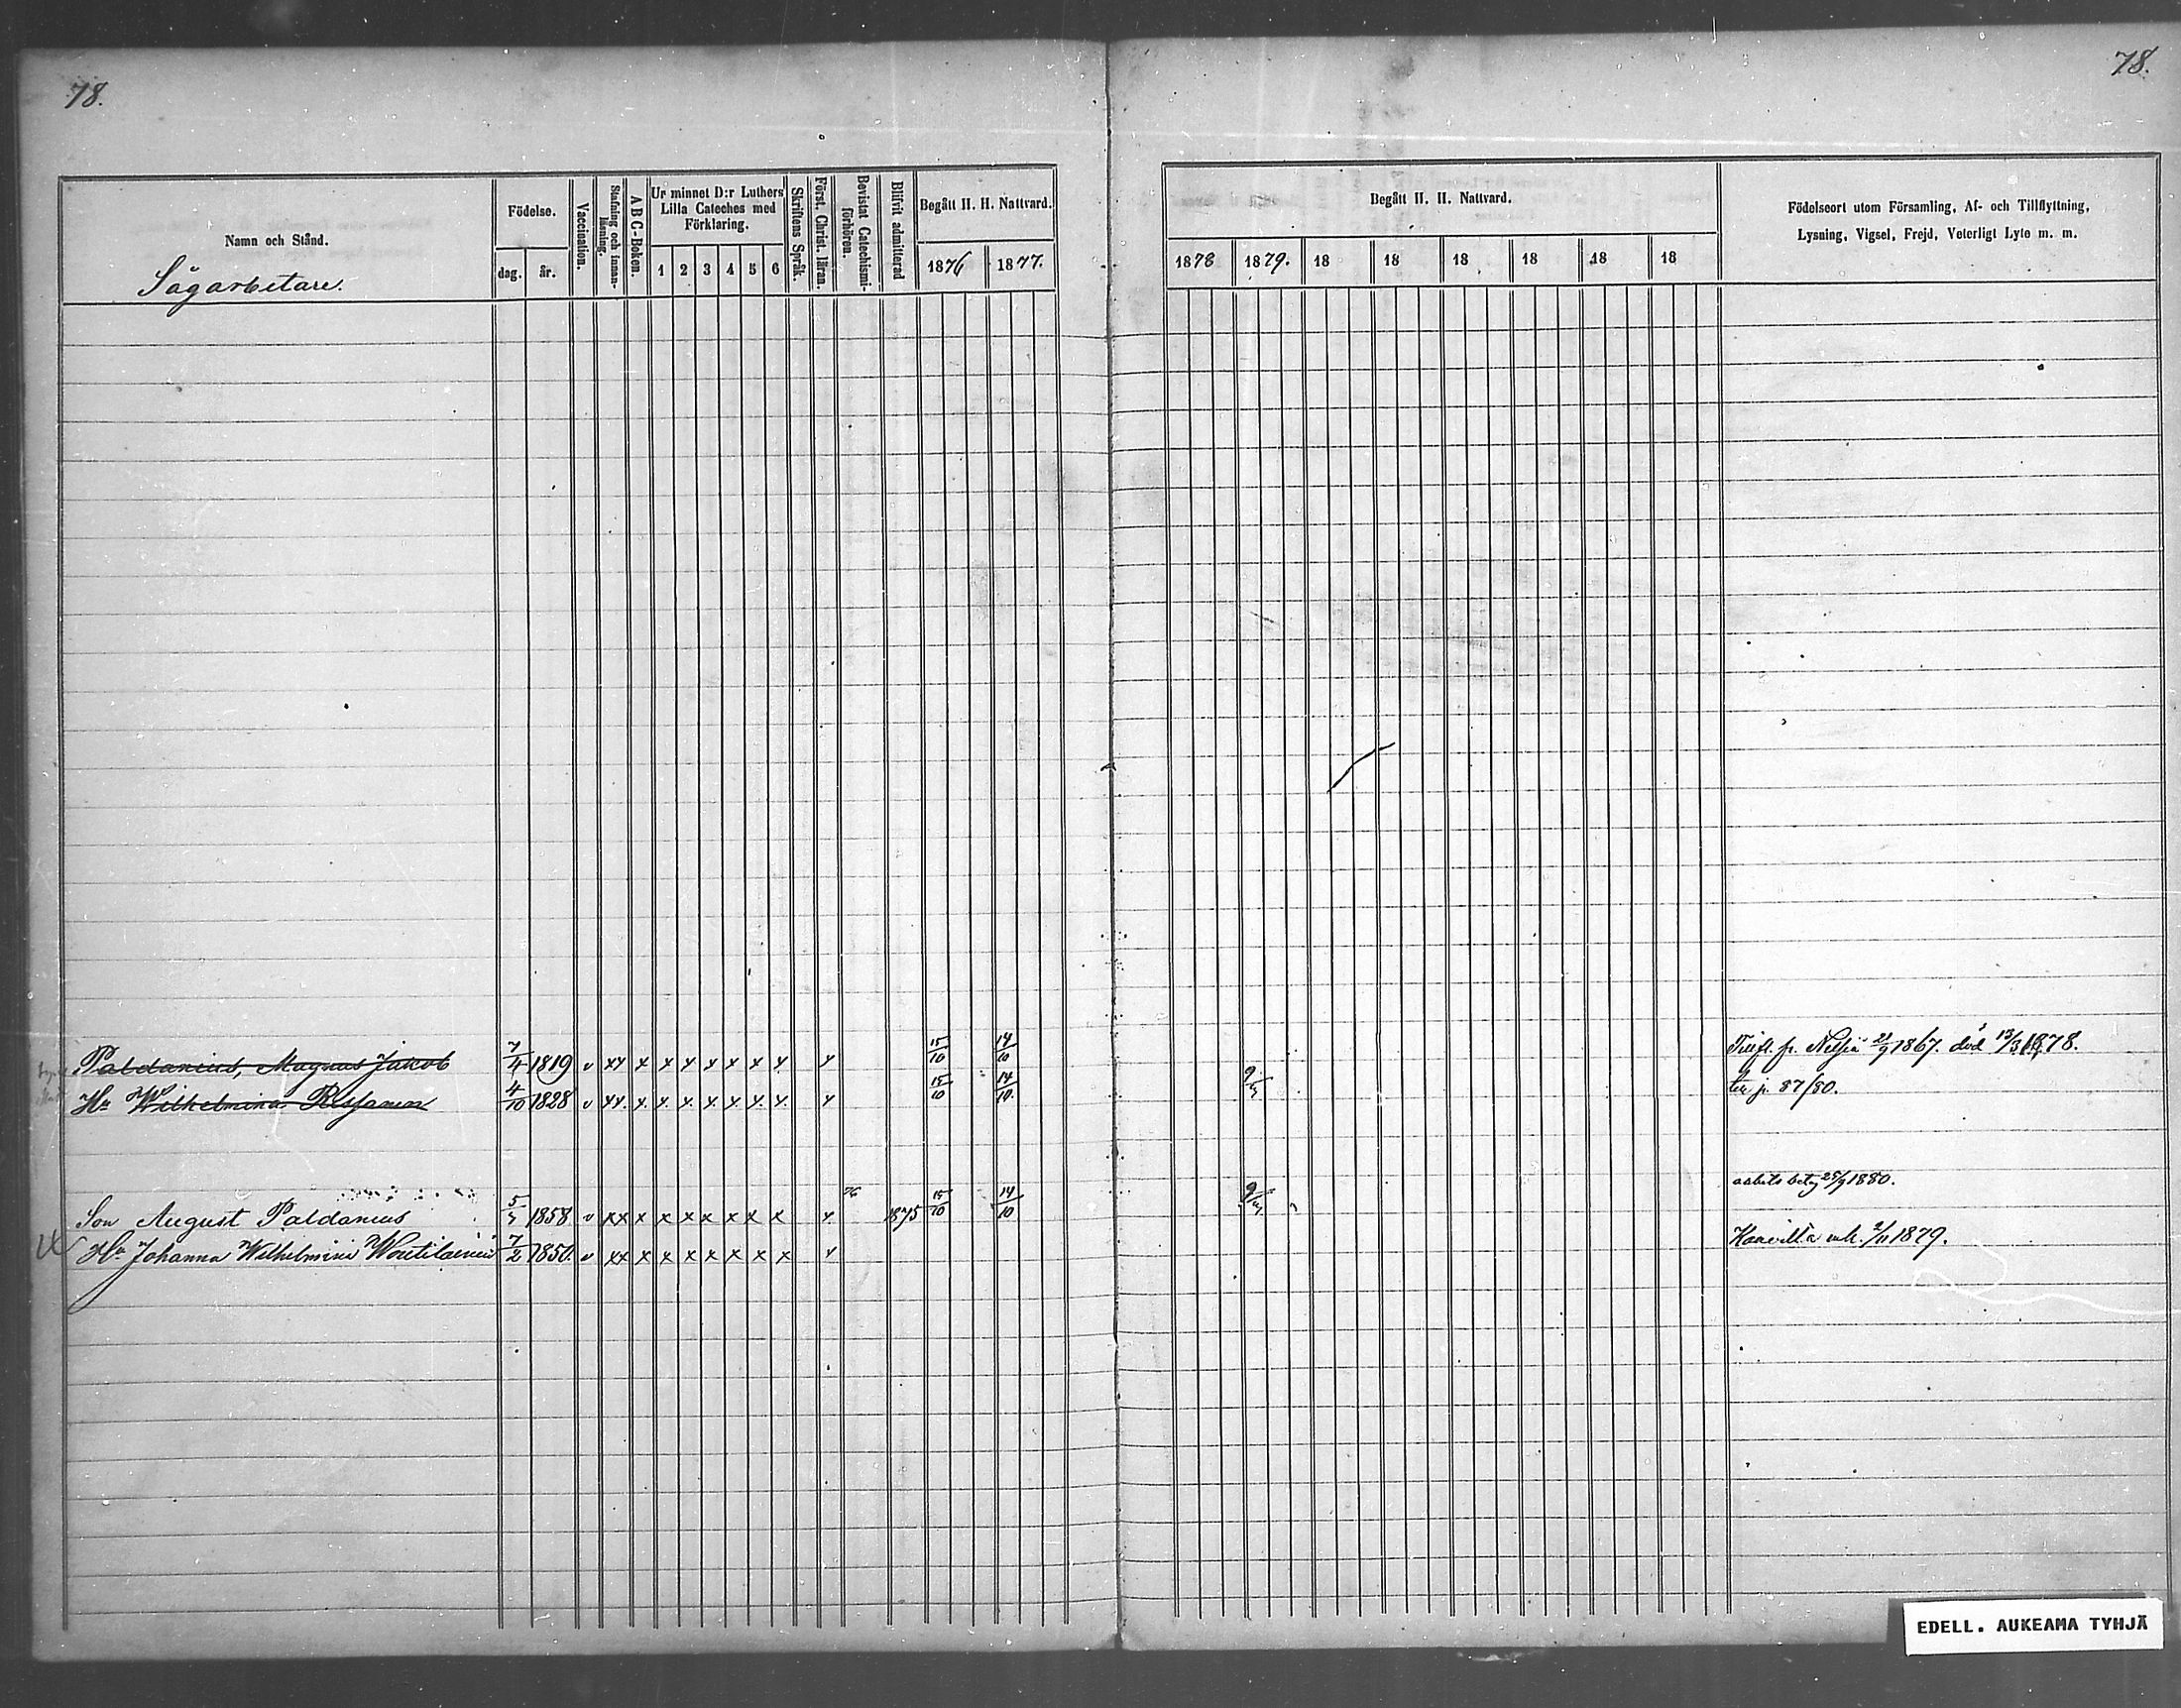 78.
78.
Namn och Stånd.
Sågarbetare.
Födelse.
dag. år.
Vaccination.
Stafning och innan-läsning.
A B C-Boken.
Ur minnet D:r Luthers
Lilla Cateches med
Förklaring.
1 2 3 4 5 6
Skriftens Språk.
Först. Christ. läran.
Bevistat Catechismi-förhören.
Blifvit admitterad
Begått H. H. Nattvard.
1876 1877.
Begått H. H. Nattvard.
1878 1879. 18 18 18 18 18 18
Födelseort utom Församling, Af- och Tillflyttning,
Lysning, Vigsel, Frejd, Veterligt Lyte m. m.
Paldanius, Magnus Jakob 7/4 1819 v xx x x x x x x x x 15/10 14/10 Tillfl. fr. Nilsiä 21/9 1867. död 13/3 1878.
Hu Wilhelmina 4/10 1828 v xx. x. x. x. x. x x. x. x 15/10 14/10. 87/80.
25/9 1880.
Son August Paldanius 5/5 1858 v xx x x x x x x x x 1875 15/10 14/10
Hu Johanna Wilhelmina Woutilainen 7/2 1850. v xx x x x x x x x x 2/11 1879.
EDELL. AUKEAMA TYHJÄ